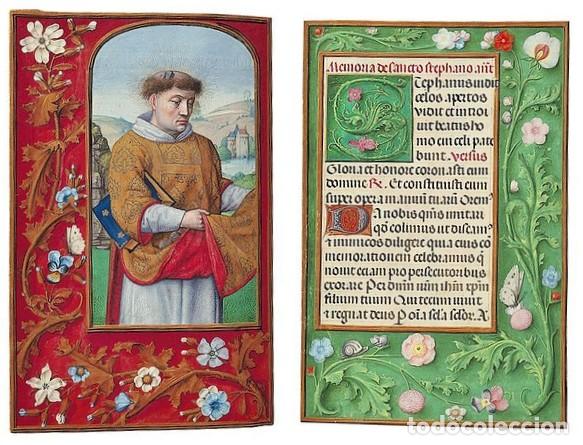 Memoria de sancto stephano añ
Stephanus vidit
celos apertos
vidit et introi
uit beatus ho
mo cui celi pate
bant. Versus
Gloria et honore coronasti eum
domine R. Et constituisti eum
super opera manuū tuarū Orem
Da nobis qm̄s imitar
quod colimus ut discam
et inimicos diligere quia eius co
memorationem celebramus q
nouit eciam pro persecutoribus
exorare Per dñm nrm ihm xpm
filium tuum Qui tecum viuit
et regnat deus P
todocoleccion
todocoleccion.net